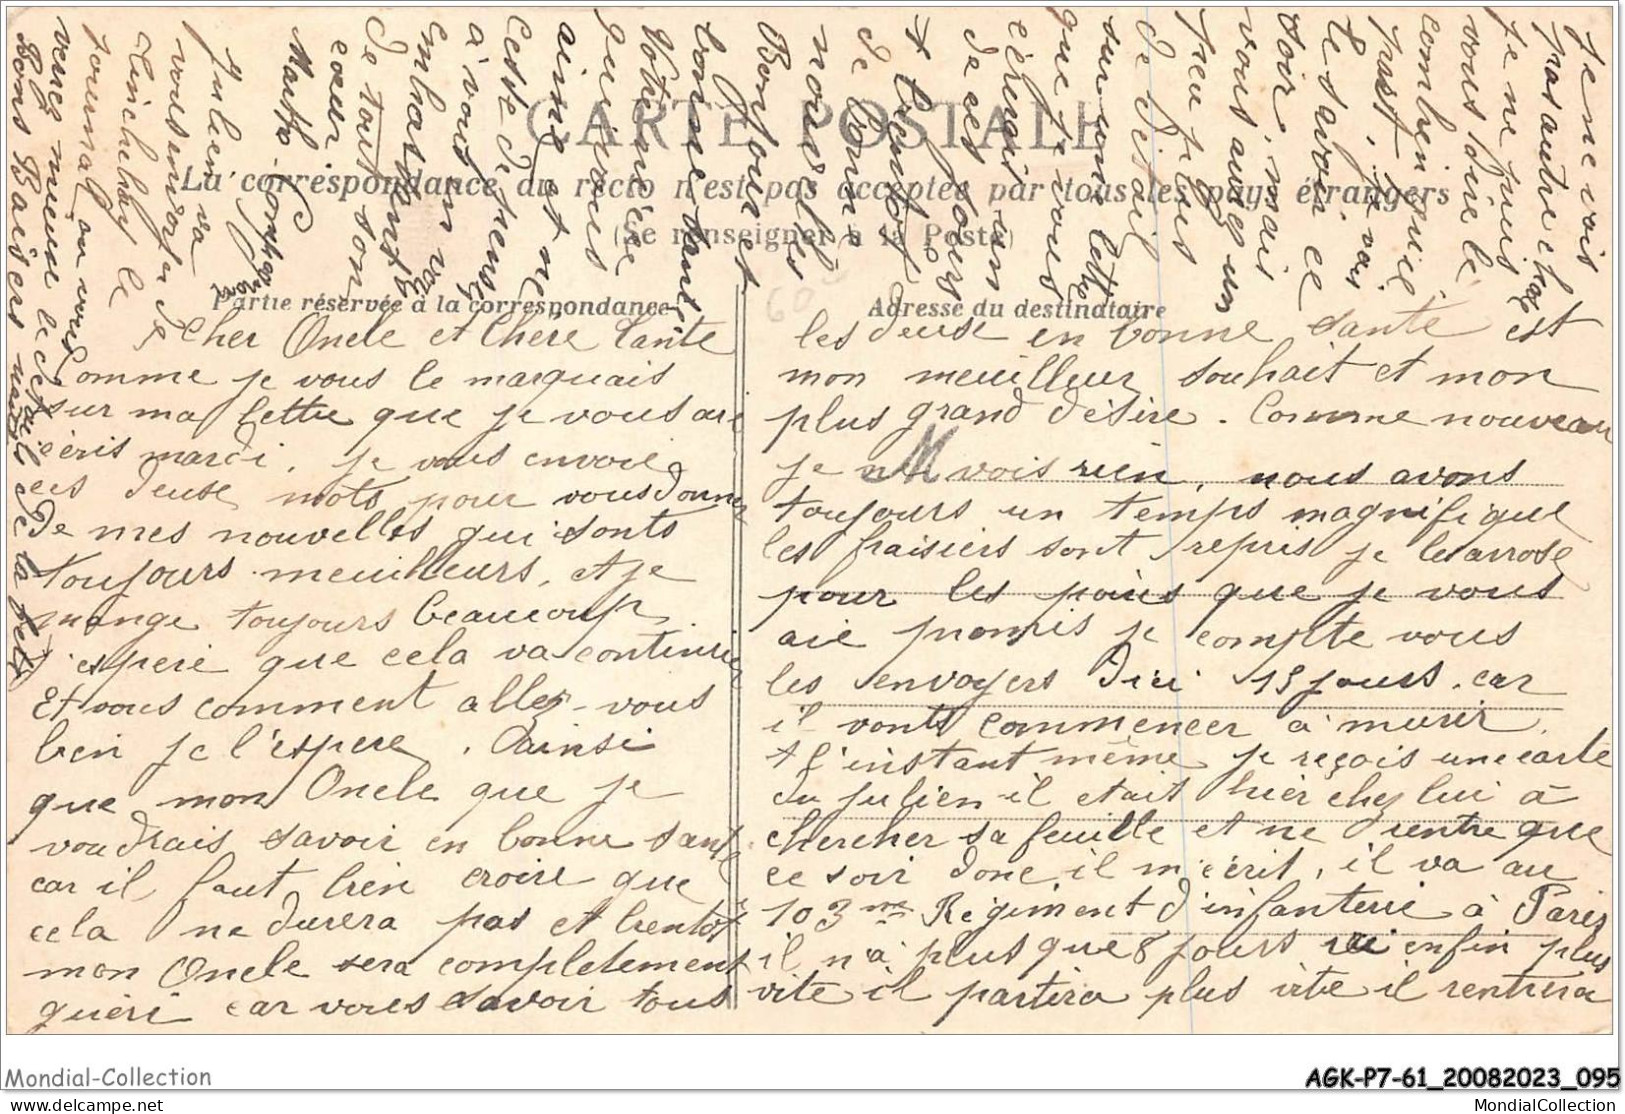 CARTE POSTALE
La correspondance au recto n'est pas acceptée par tous les pays étrangers
(Se renseigner à la Poste)
Partie réservée à la correspondance
Adresse du destinataire
Cher Oncle et Chère Tante
Comme je vous le marquais
sur ma lettre que je vous ari
écris mardi, je vous envoie
ces deuse mots pour vous donner
de mes nouvelles qui sonts
toujours meuilleurs, et je
mange toujours beaucoup
j'espere que cela va continuer
Et vous comment allez-vous
bien je l'espere. Oainsi
que mon Oncle que je
voudrais savoir en bonne santé
car il faut bien croire que
cela ne durera pas et bientôt
mon Oncle sera completement
guéri car vous savoir tous
les deuse en bonne santé est
mon meuilleur souhait et mon
plus grand désire. Comme nouveau
je ne vois rien, nous avons
toujours un temps magnifique
les fraisiers sont repris je les arrose
pour les pois que je vous
aie promis je compte vous
les envoyers d'ici 15 jours. car
il vonts commencer à murir.
A l'instant même je reçois une carte
du Julien il etait hier chez lui à
chercher sa feuille et ne rentre que
ce soir donc il m'écrit, il va au
103me Régiment d'infanterie à Paris
il n'a plus que 8 jours ici enfin plus
vite il partira plus vite il rentrera
Je ne vois
pas autre chose
je ne puis
vous dire le
combien
le savoir ce
soir, mais
vous aurez un
peu plus
de détail
sur une lettre
que je vous
écrirait un
de ces jours
de bonnes
nouvelles
Bonjour et
bonne santé
Votre nièce
qui vous
aime et ne
cesse de penser
à vous en vous
embrassant
de tout son
cœur
Marthe
Julien va
vous envoyer de
Tinchebray le
journal ou vous
verrez mieux le détail de la fête
Bons Baisers
60
M
Mondial-Collection
AGK-P7-61_20082023_095
Mondial-Collection.com
MondialCollection